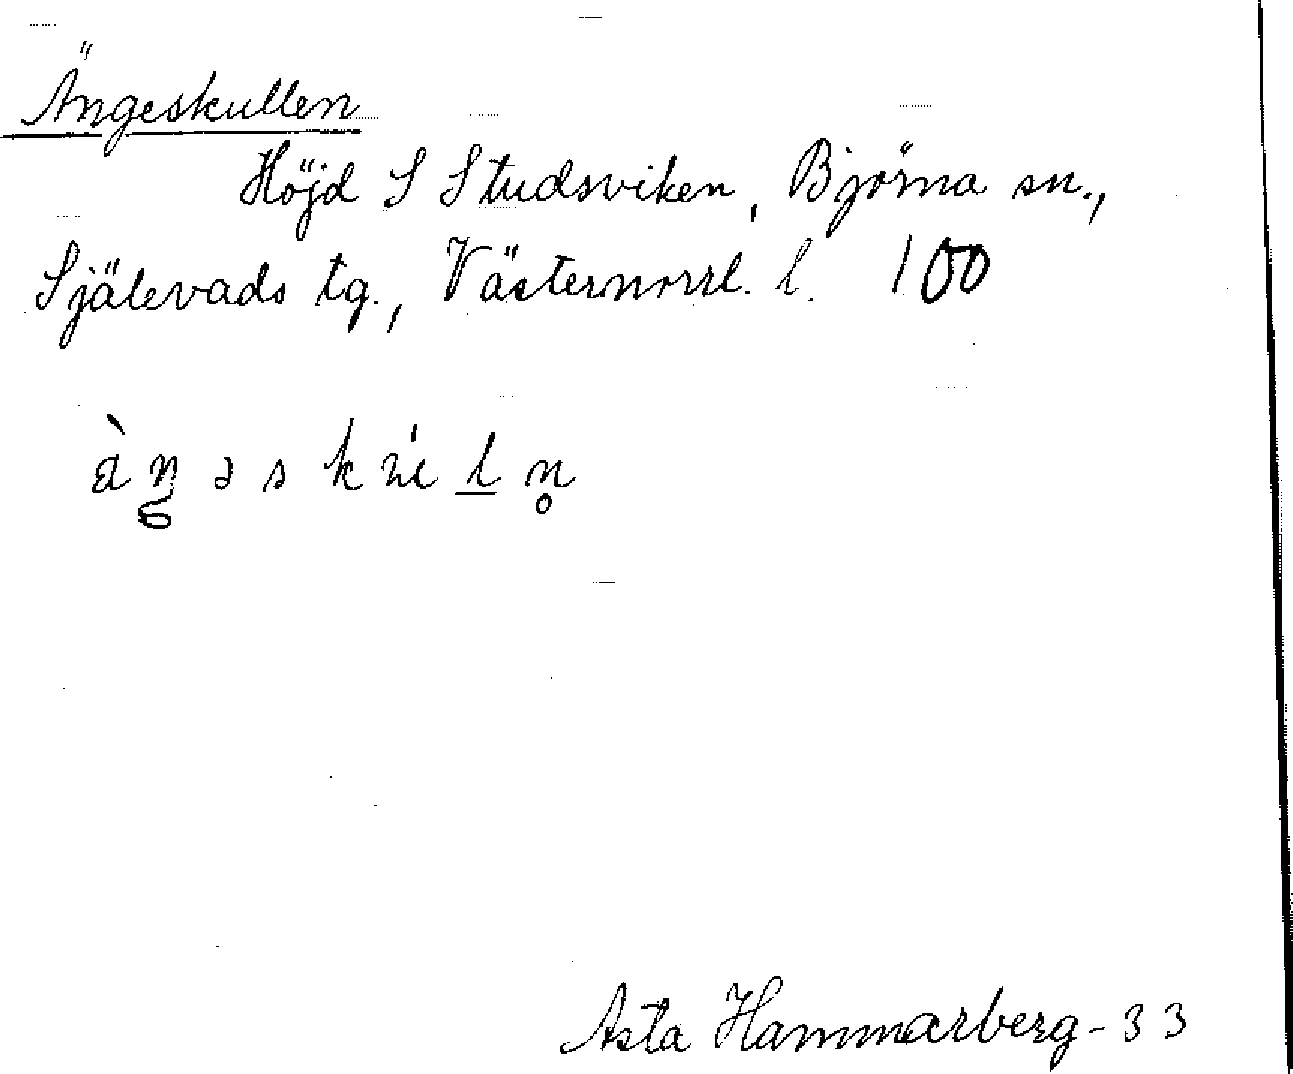 Ängeskullen
Höjd S Studsviken, Björna sn.,
Själevads tg., Västernorrl. l. 100
Asta Hammarberg-33